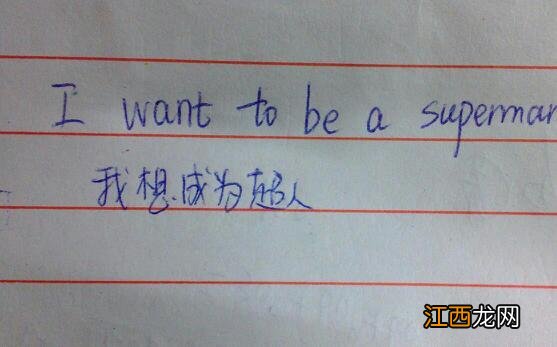 I want to be a superman
我想成为超人
江西龙网